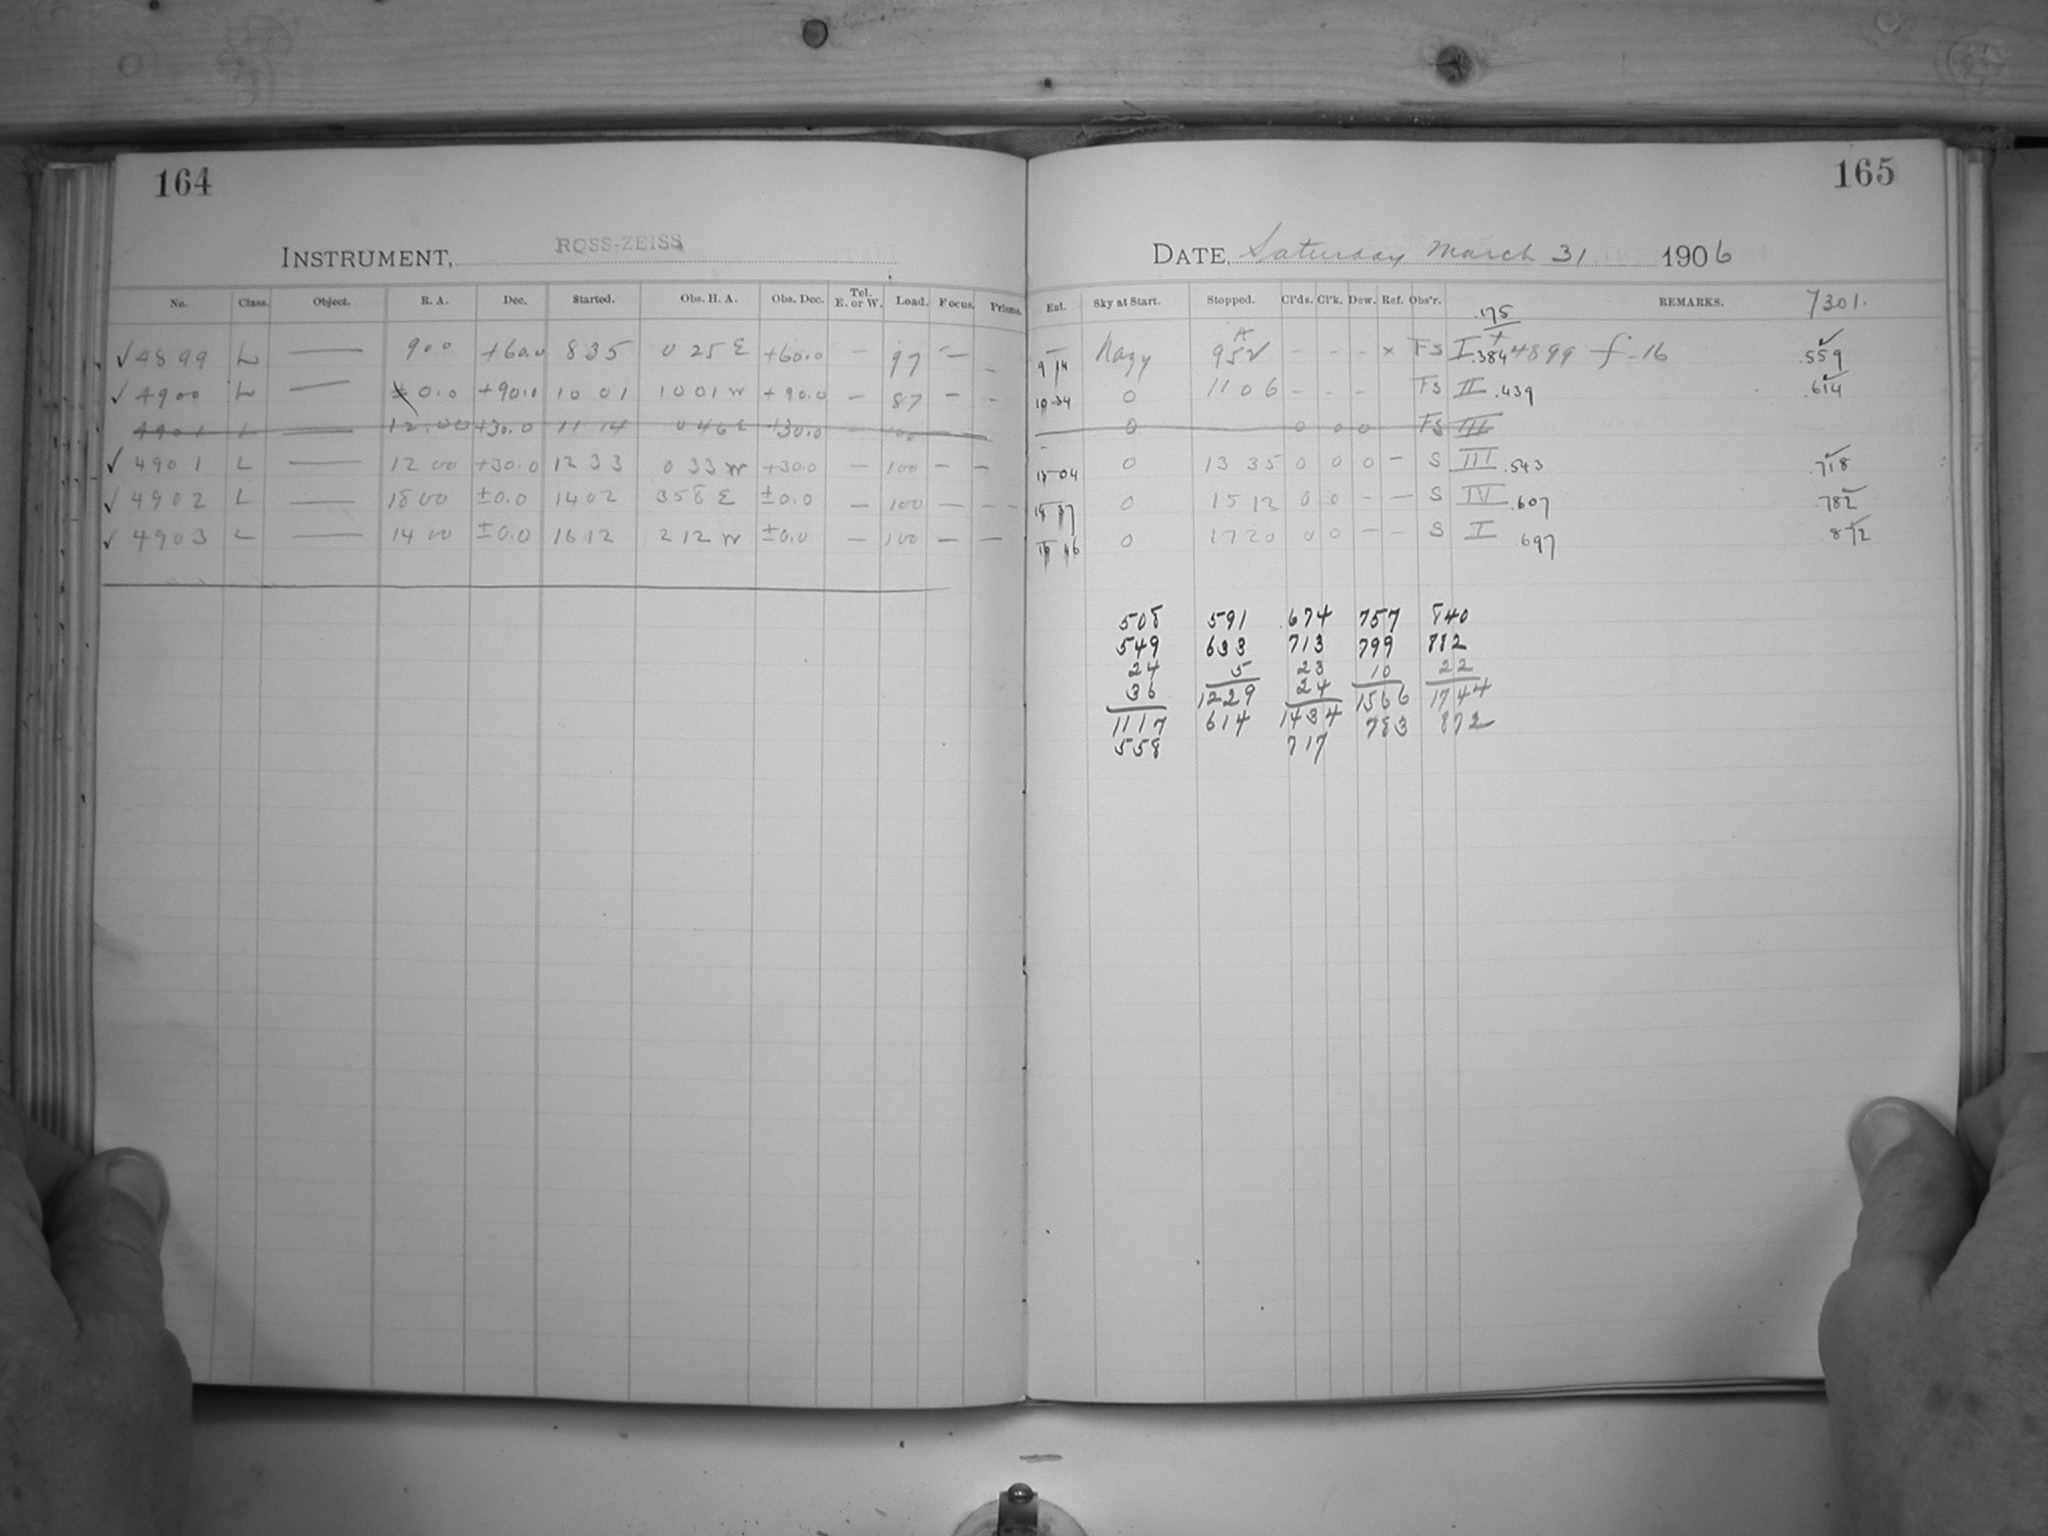 164
INSTRUMENT, ROSS-ZEISS
No. Class. Object. R. A. Dec. Started. Obs. H. A. Obs. Dec. Tel. E. or W. Load. Focus. Prisms.
✓ 4899 L — 9 00 +60.0 8 35 0 25 E +60.0 — 97 — –
✓ 4900 L — ± 0.0 +90.0 10 01 10 01 W +90.0 — 87 – –
4901 L — 12.00 +30.0 11 14 0 46 E +30.0 — 100 –
✓ 4901 L — 12 00 +30.0 12 33 0 33 W +30.0 — 100 – –
✓ 4902 L — 18 00 ±0.0 14 02 3 58 E ±0.0 — 100 — – –
✓ 4903 L — 14 00 ±0.0 16 12 2 12 W ±0.0 — 100 — —
165
DATE, Saturday March 31 1906
Ent. Sky at Start. Stopped. Cl'ds. Cl'k. Dew. Ref. Obs'r. REMARKS. 7301.
.175
+
9 14 Hazy 9 52 – – – × FS I .384 4899 f-16 .559
10 34 0 11 06 – – – FS II .439 .614
0 0 0 0 FS III
13 04 0 13 35 0 0 0 – S III .543 .718
14 37 0 15 12 0 0 – — S IV .607 .782
16 46 0 17 20 0 0 – – S I .697 .872
508 591 .674 757 840
549 633 713 799 882
24 5 23 10 22
36 1229 24 1566 1744
1117 614 1434 783 872
558 717